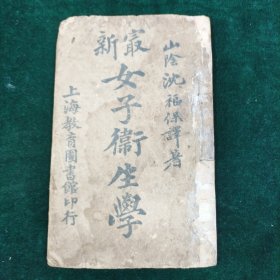 山陰沈福保譯著
最新
女子衞生學
上海教育圖書館印行